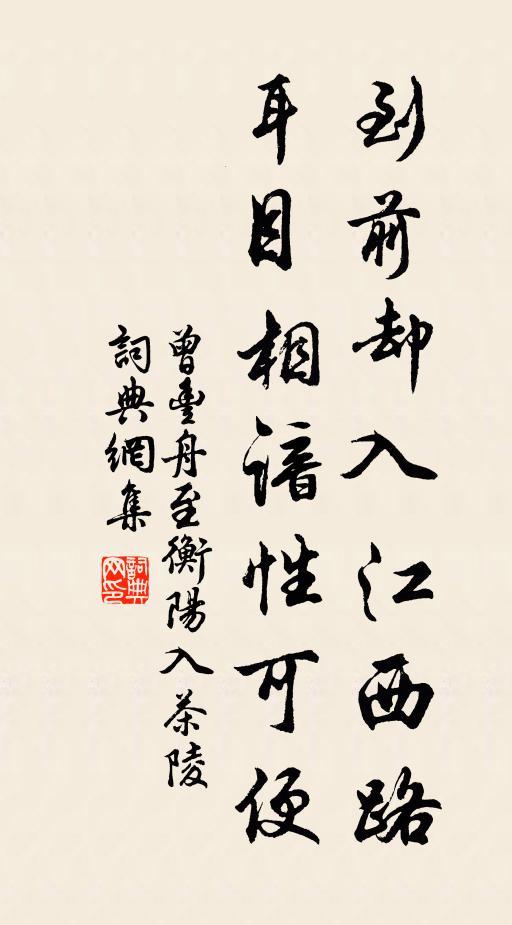 到前却入江西路
耳目相諳性可便
曾豐舟至衡陽入茶陵
詞典網集
詞典网印